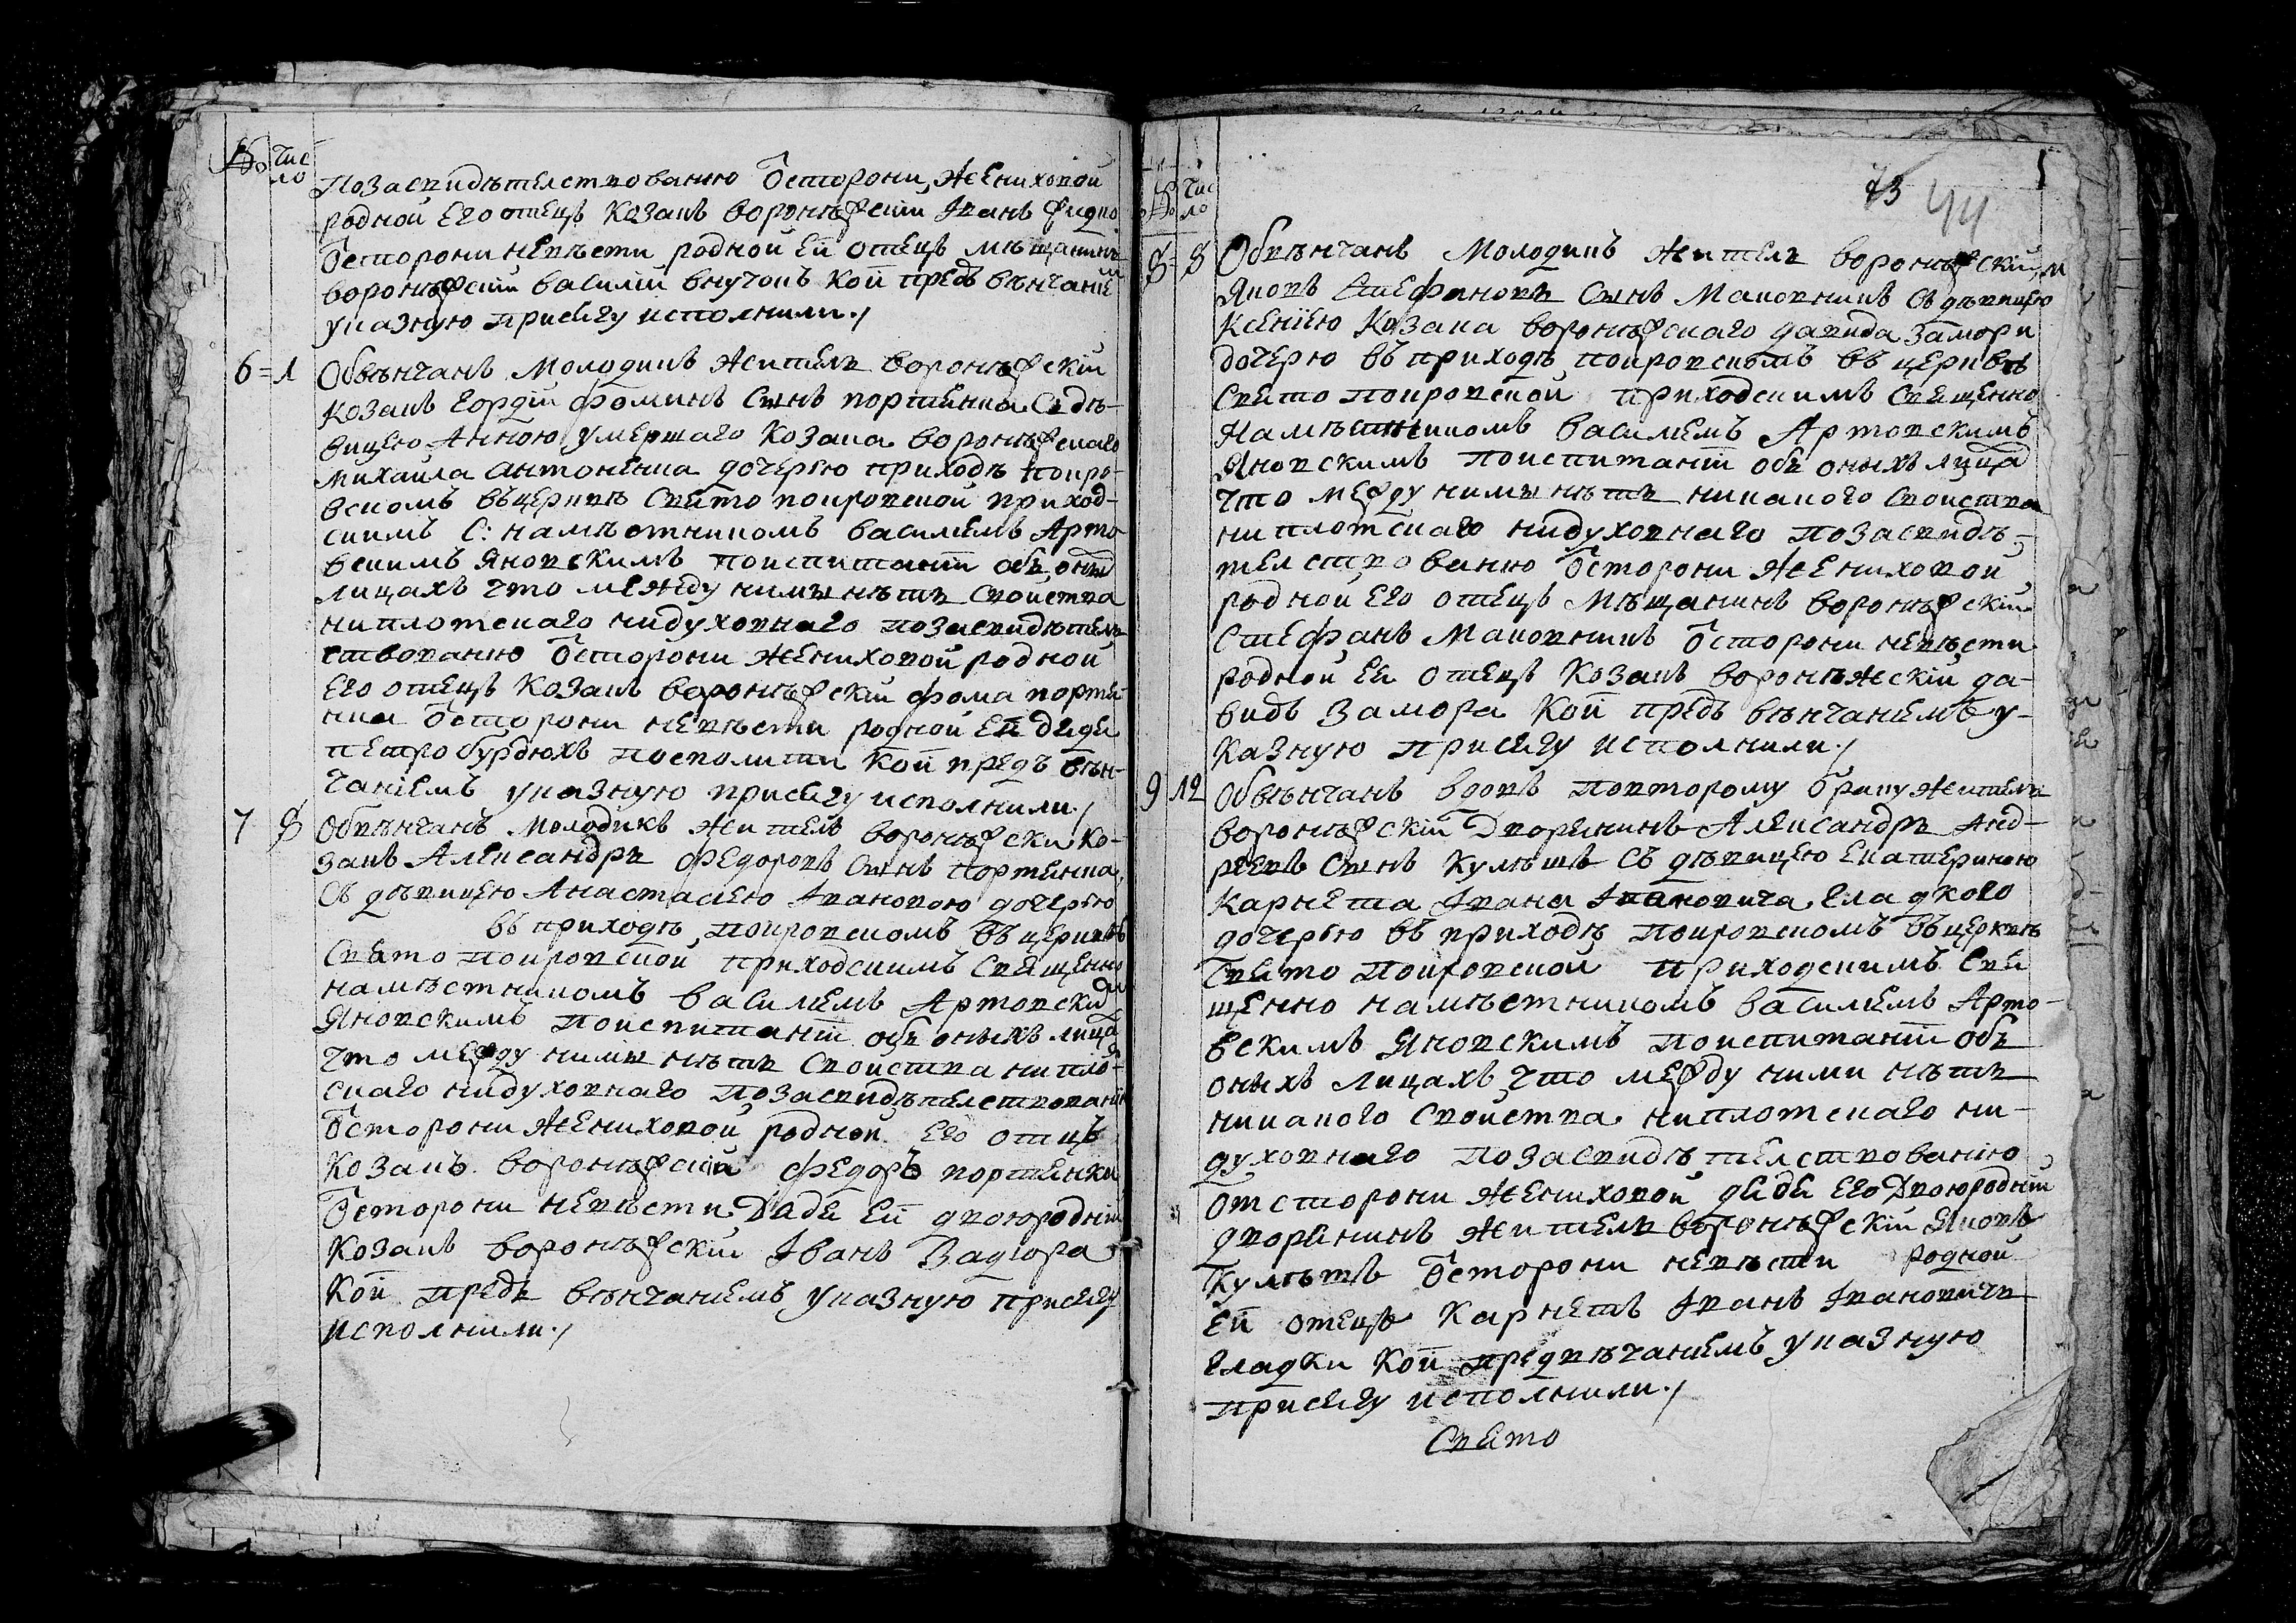 Число
Позасвидѣтелствованию Ѿсторони жениховой
родной его отецъ козакъ воронѣжскій Іванъ
Ѿсторони невѣсти родной ей отецъ мѣщанинъ
воронѣжскій василій внучокъ кой предъ вѣнчание
указную присягу исполнили./
6 = 1 Обвѣнчанъ молодикъ житель воронѣжскій
козакъ гордѣй фоминъ сынъ портянка съ дѣ-
вицею Анною умершаго козака воронѣжскаго
михаила антоненка дочерью приходѣ покро-
вскомъ въ церквѣ свято покровской приход-
скимъ С: намѣстникомъ василіемъ Арто
вскимъ Яновскимъ поиспитаніи объ оных
лицахъ что между ними нѣтъ своиства
ниплотскаго нидуховнаго позасвидѣтель
ствованию Ѿсторони жениховой родной
его отецъ козакъ воронѣжскій фома портян
нка Ѿсторони невѣсти родной ей дядя
петро бурдюхъ посполити кой предъ вѣн-
чаніемъ указную присягу исполнили./
7 8 Обвѣнчанъ молодикъ житель воронѣжски ко-
закъ Александръ федоровъ сынъ портянка
Съ дѣвицею Анастасіею Івановою дочерью
въ приходѣ покровскомъ въ церквѣ
Свято покровской приходскимъ священно
намѣстникомъ василіемъ Артовским
Яновскимъ поиспитаніи объ оныхъ лица
что между ними нѣтъ своиства нипло-
скаго нидуховнаго позасвидѣтелствовани
Ѿсторони жениховой родной его отцъ
козакъ воронѣжскій федоръ портянка
Ѿсторони невѣсти Дядя ей двоюродній
козакъ воронѣжскій Іванъ Задюра
Кой предъ вѣнчаніемъ указную присягу
исполнили./
43 44
Число
8 = 8 Обвѣнчанъ молодикъ житель воронѣжскій м
Яковъ Стефановъ сынъ Маковникъ Съ дѣвицею
Ксеніею козака воронѣжскаго давида замори
дочерю въ приходѣ покровскомъ въ церквѣ
Свято покровской приходскимъ священно
намѣстникомъ василіемъ Артовскимъ
Яновскимъ поиспитаніи объ оныхъ лица
что между ними нѣтъ никакого своиства
ниплотскаго нидуховнаго позасвидѣ-
телствованию Ѿсторони жениховой
родной его отецъ мѣщанинъ воронѣжскій
Стефанъ Маковникъ Ѿсторони невѣсти
родной ея отецъ козакъ воронѣжскій да-
видъ замора Кой предъ вѣнчаніемъ у-
казную присягу исполнили./
9 12 Обвѣнчанъ вдовъ повторому браку житель
воронѣжскій Дворянинъ Александръ Анд-
реевъ сынъ Кулѣшъ съ дѣвицею Екатериною
Карнета Івана Івановича гладкого
дочерью въ приходѣ покровскомъ въ церквѣ
Свято покровской приходскимъ Свя
щенно намѣстникомъ василіемъ Арто-
вскимъ Яновскимъ поиспитаніи объ
оныхъ лицахъ что между ними нѣтъ
никакого своиства ниплотскаго ни-
духовнаго позасвидѣтелствованію
отсторони жениховой дядя его Двоюродній
дворянинъ житель воронѣжскій Яковъ
Кулѣшъ Ѿсторони невѣсти родной
ей отецъ Карнетъ Іванъ Івановичъ
гладки Кой предвѣчаніемъ указную
присягу исполнили./
Свято